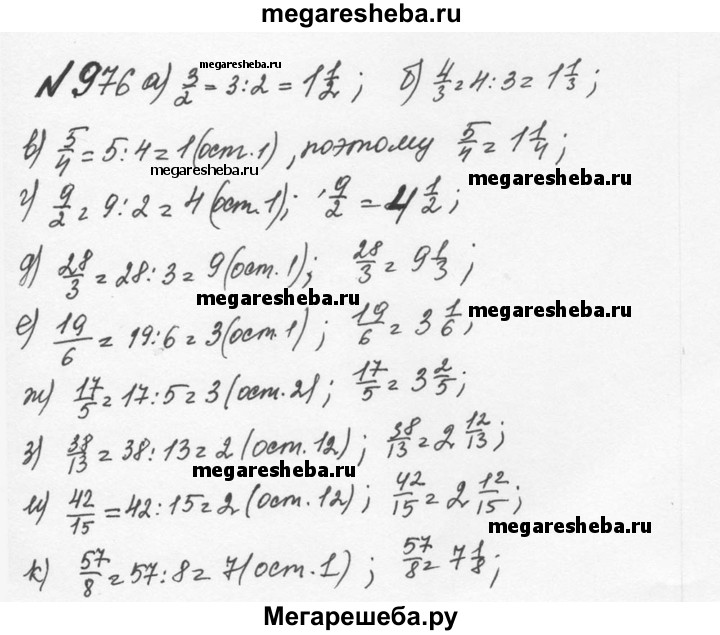 megaresheba.ru
megaresheba.ru
№976 а) 3/2 = 3:2 = 1 1/2; б) 4/3 = 4:3 = 1 1/3;
в) 5/4 = 5:4 = 1 (ост.1), поэтому 5/4 = 1 1/4;
megaresheba.ru
megaresheba.ru
г) 9/2 = 9:2 = 4 (ост.1); 9/2 = 4 1/2;
д) 28/3 = 28:3 = 9 (ост.1); 28/3 = 9 1/3;
megaresheba.ru
е) 19/6 = 19:6 = 3 (ост.1); 19/6 = 3 1/6;
megaresheba.ru
ж) 17/5 = 17:5 = 3 (ост.2); 17/5 = 3 2/5;
з) 38/13 = 38:13 = 2 (ост.12); 38/13 = 2 12/13;
megaresheba.ru
и) 42/15 = 42:15 = 2 (ост.12); 42/15 = 2 12/15;
megaresheba.ru
к) 57/8 = 57:8 = 7 (ост.1); 57/8 = 7 1/8;
Мегарешеба.ру